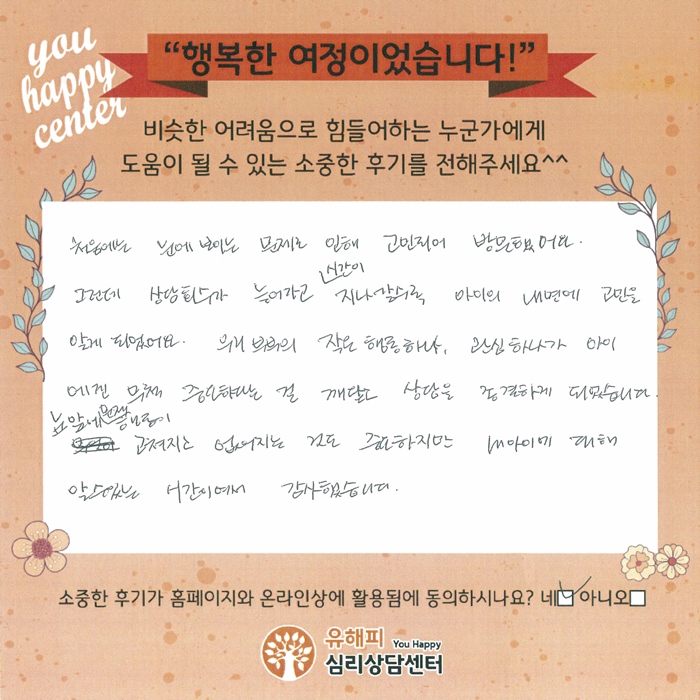 you
happy
center
“행복한 여정이었습니다!”
비슷한 어려움으로 힘들어하는 누군가에게
도움이 될 수 있는 소중한 후기를 전해주세요^^
처음에는 눈에 보이는 문제로 인해 고민되어 방문했어요.
그런데 상담횟수가 늘어가고 시간이 지나갈수록 아이의 내면에 고민을
알게 되었어요. 우리 부부의 작은 행동하나, 관심하나가 아이
에겐 무척 중요하다는 걸 깨닫고 상담을 종결하게 되었습니다.
눈앞에 문제행동이 고쳐지고 없어지는 것도 중요하지만 내아이에 대해
알수있는 시간이여서 감사했습니다.
소중한 후기가 홈페이지와 온라인상에 활용됨에 동의하시나요? 네 아니오
유해피 You Happy
심리상담센터